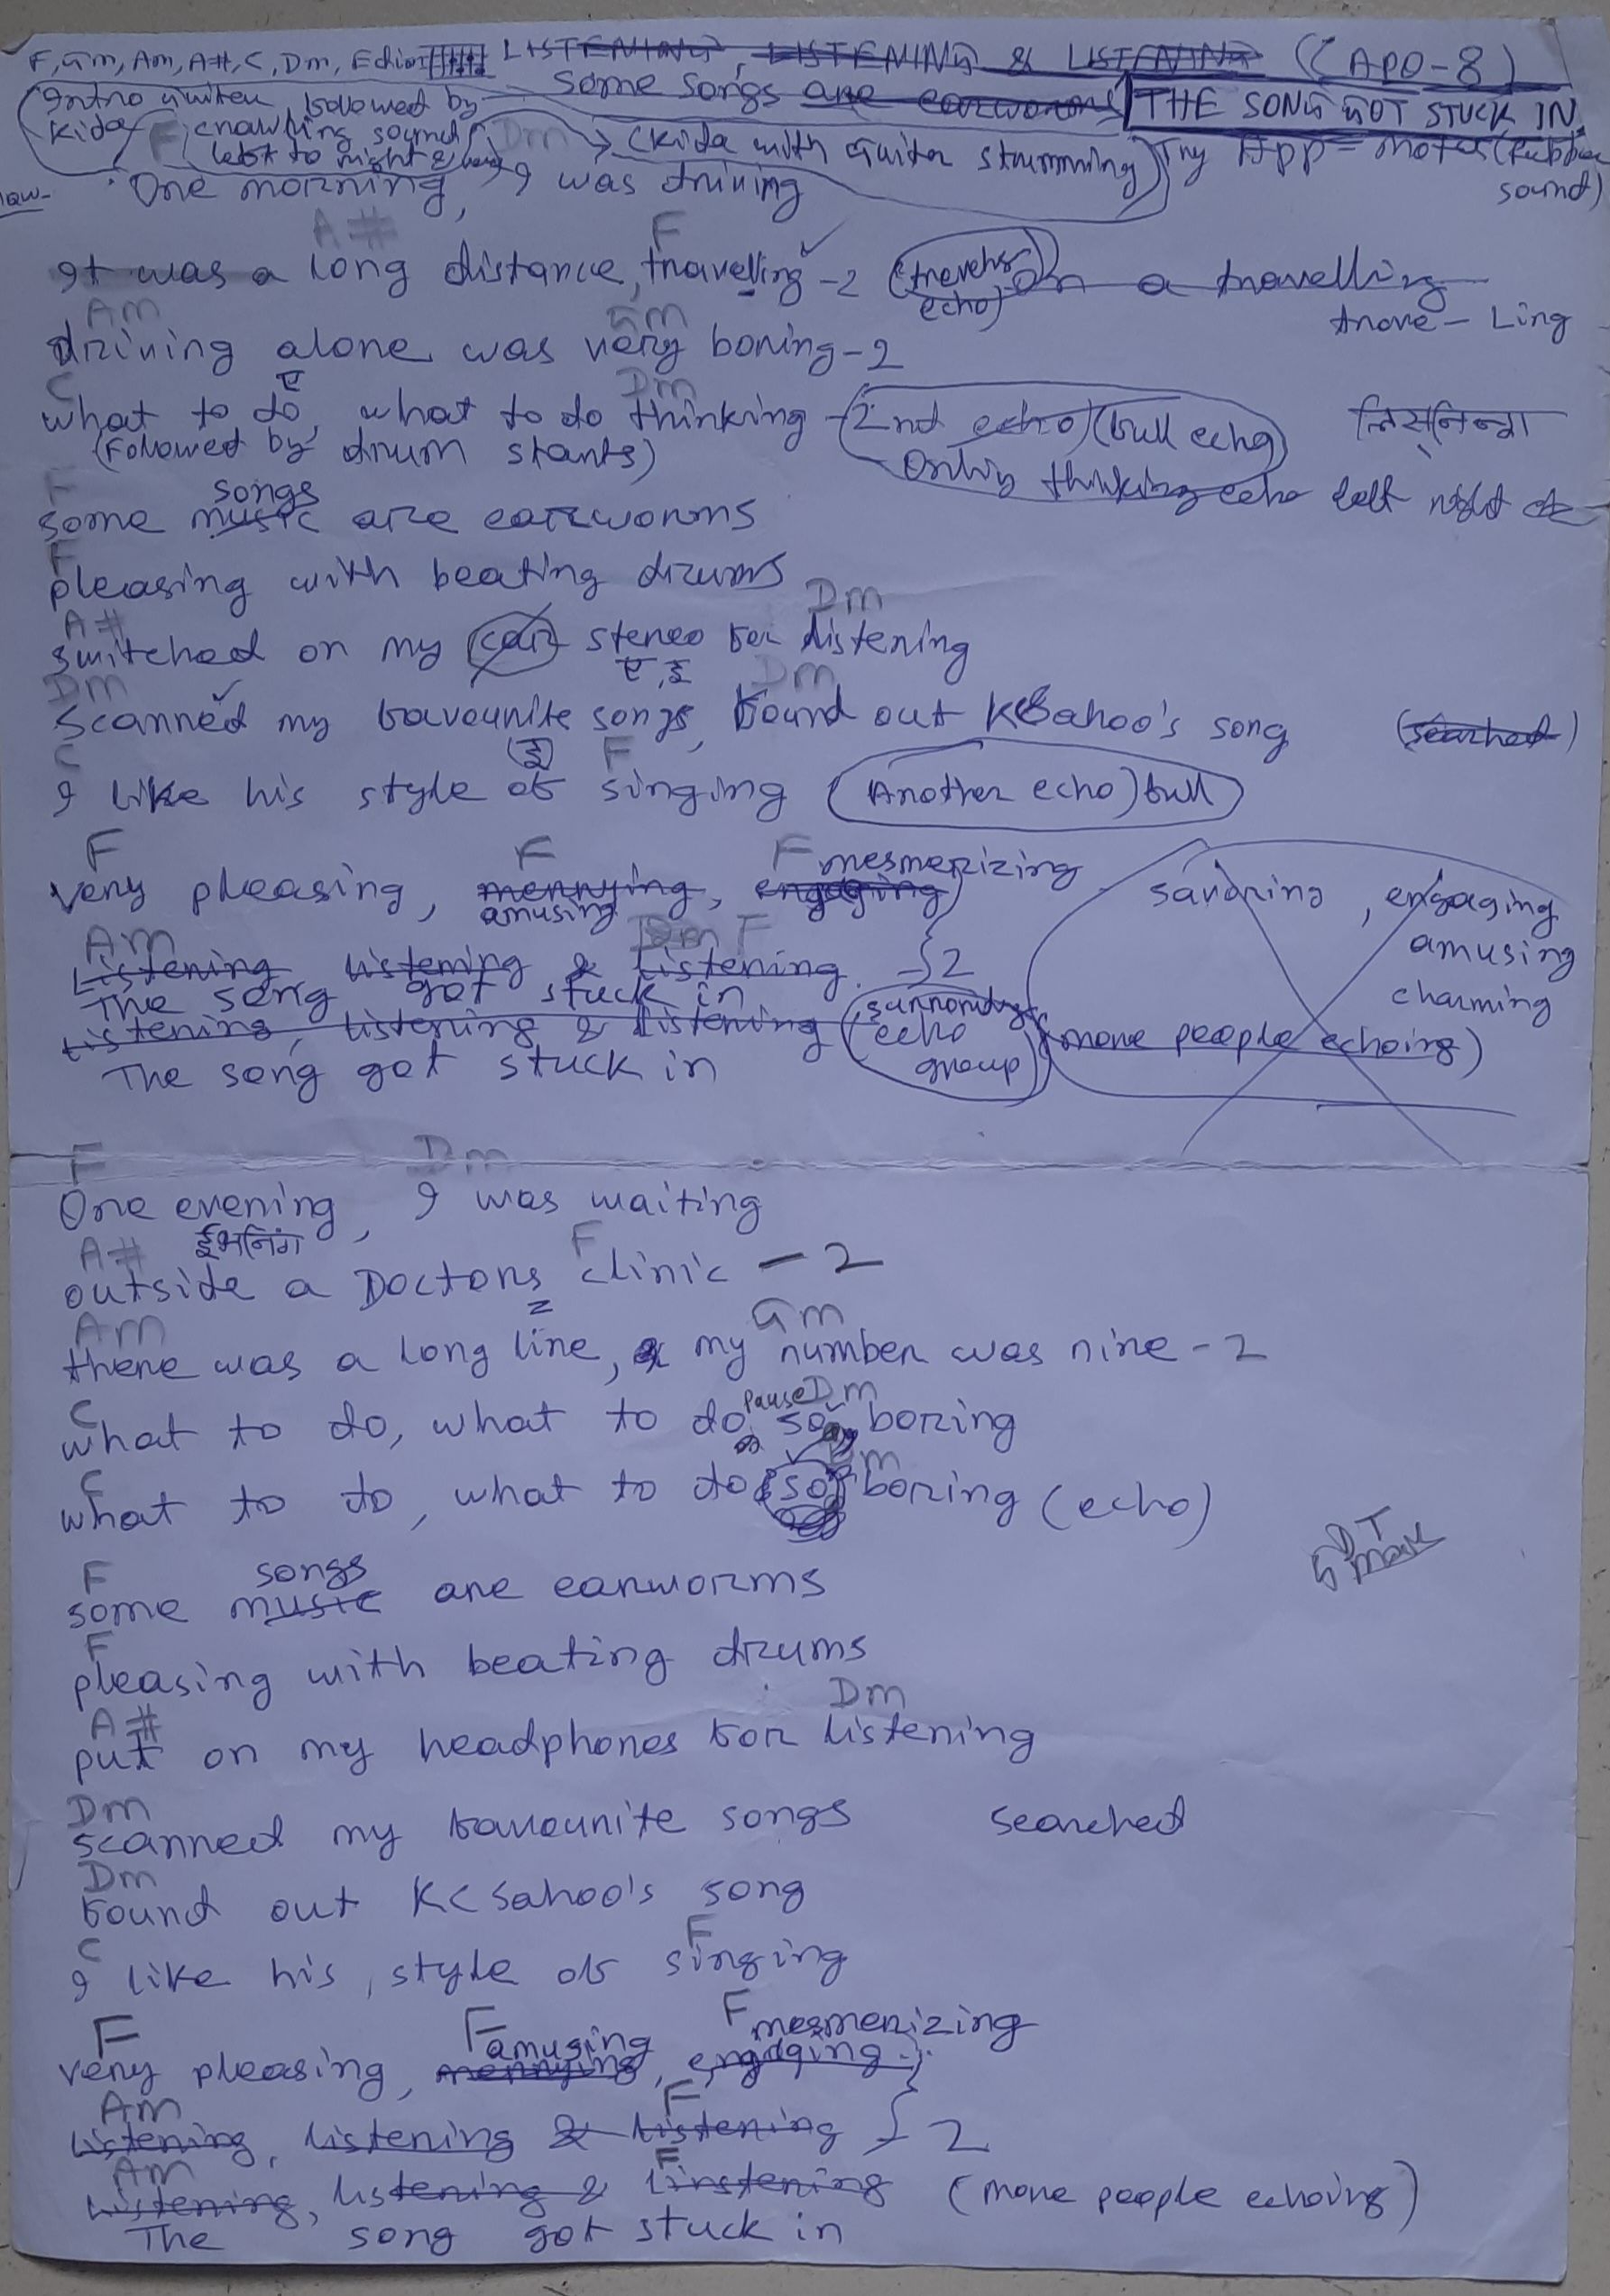 F, Gm, Am, A#, C, Dm, LISTENING, LISTENING & LISTENING (APO-8)
some songs are earworms THE SONG GOT STUCK IN
Intro guiter followed by
kida crawling sound
left to right &
(kida with guiter strumming) Try App = motor (rubber sound)
F Dm
One morning, I was driving
A# F
It was a long distance, traveling -2 (travelling echo) on a travelling
trave - Ling
Am Gm
driving alone was very boring -2
C ए Dm
what to do, what to do thinking -2nd echo) (full echo) लिस्निन्ग
(Followed by drum starts) only thinking echo left right
F songs
some music are earworms
F
pleasing with beating drums
A# Dm
switched on my car stereo for listening
ए,इ
Dm Dm
Scanned my favourite songs, found out KC Sahoo's song (searched)
C (इ) F
I like his style of singing (Another echo) full
F F F mesmerizing
very pleasing, merrying, engaging
amusing
savoring, engaging
amusing
charming
Am Dm F
Listening, listening & listening }2
The song got stuck in
listening, listening & listening (surrounding echo group) (more people echoing)
The song got stuck in
F Dm
One evening, I was waiting
ईभनिंग
A# F
outside a Doctors clinic - 2
Am Gm
there was a long line, & my number was nine - 2
C pause Dm
what to do, what to do, so boring
C Dm
what to do, what to do (so) boring (echo)
F songs
some music are earworms
F
pleasing with beating drums
A# Dm
put on my headphones for listening
Dm
scanned my favourite songs searched
Dm
found out KC Sahoo's song
C F
I like his, style of singing
F F amusing F mesmerizing
very pleasing, merrying, engaging
Am F
listening, listening & listening }2
Am F
listening, listening & linstening (more people echoing)
The song got stuck in